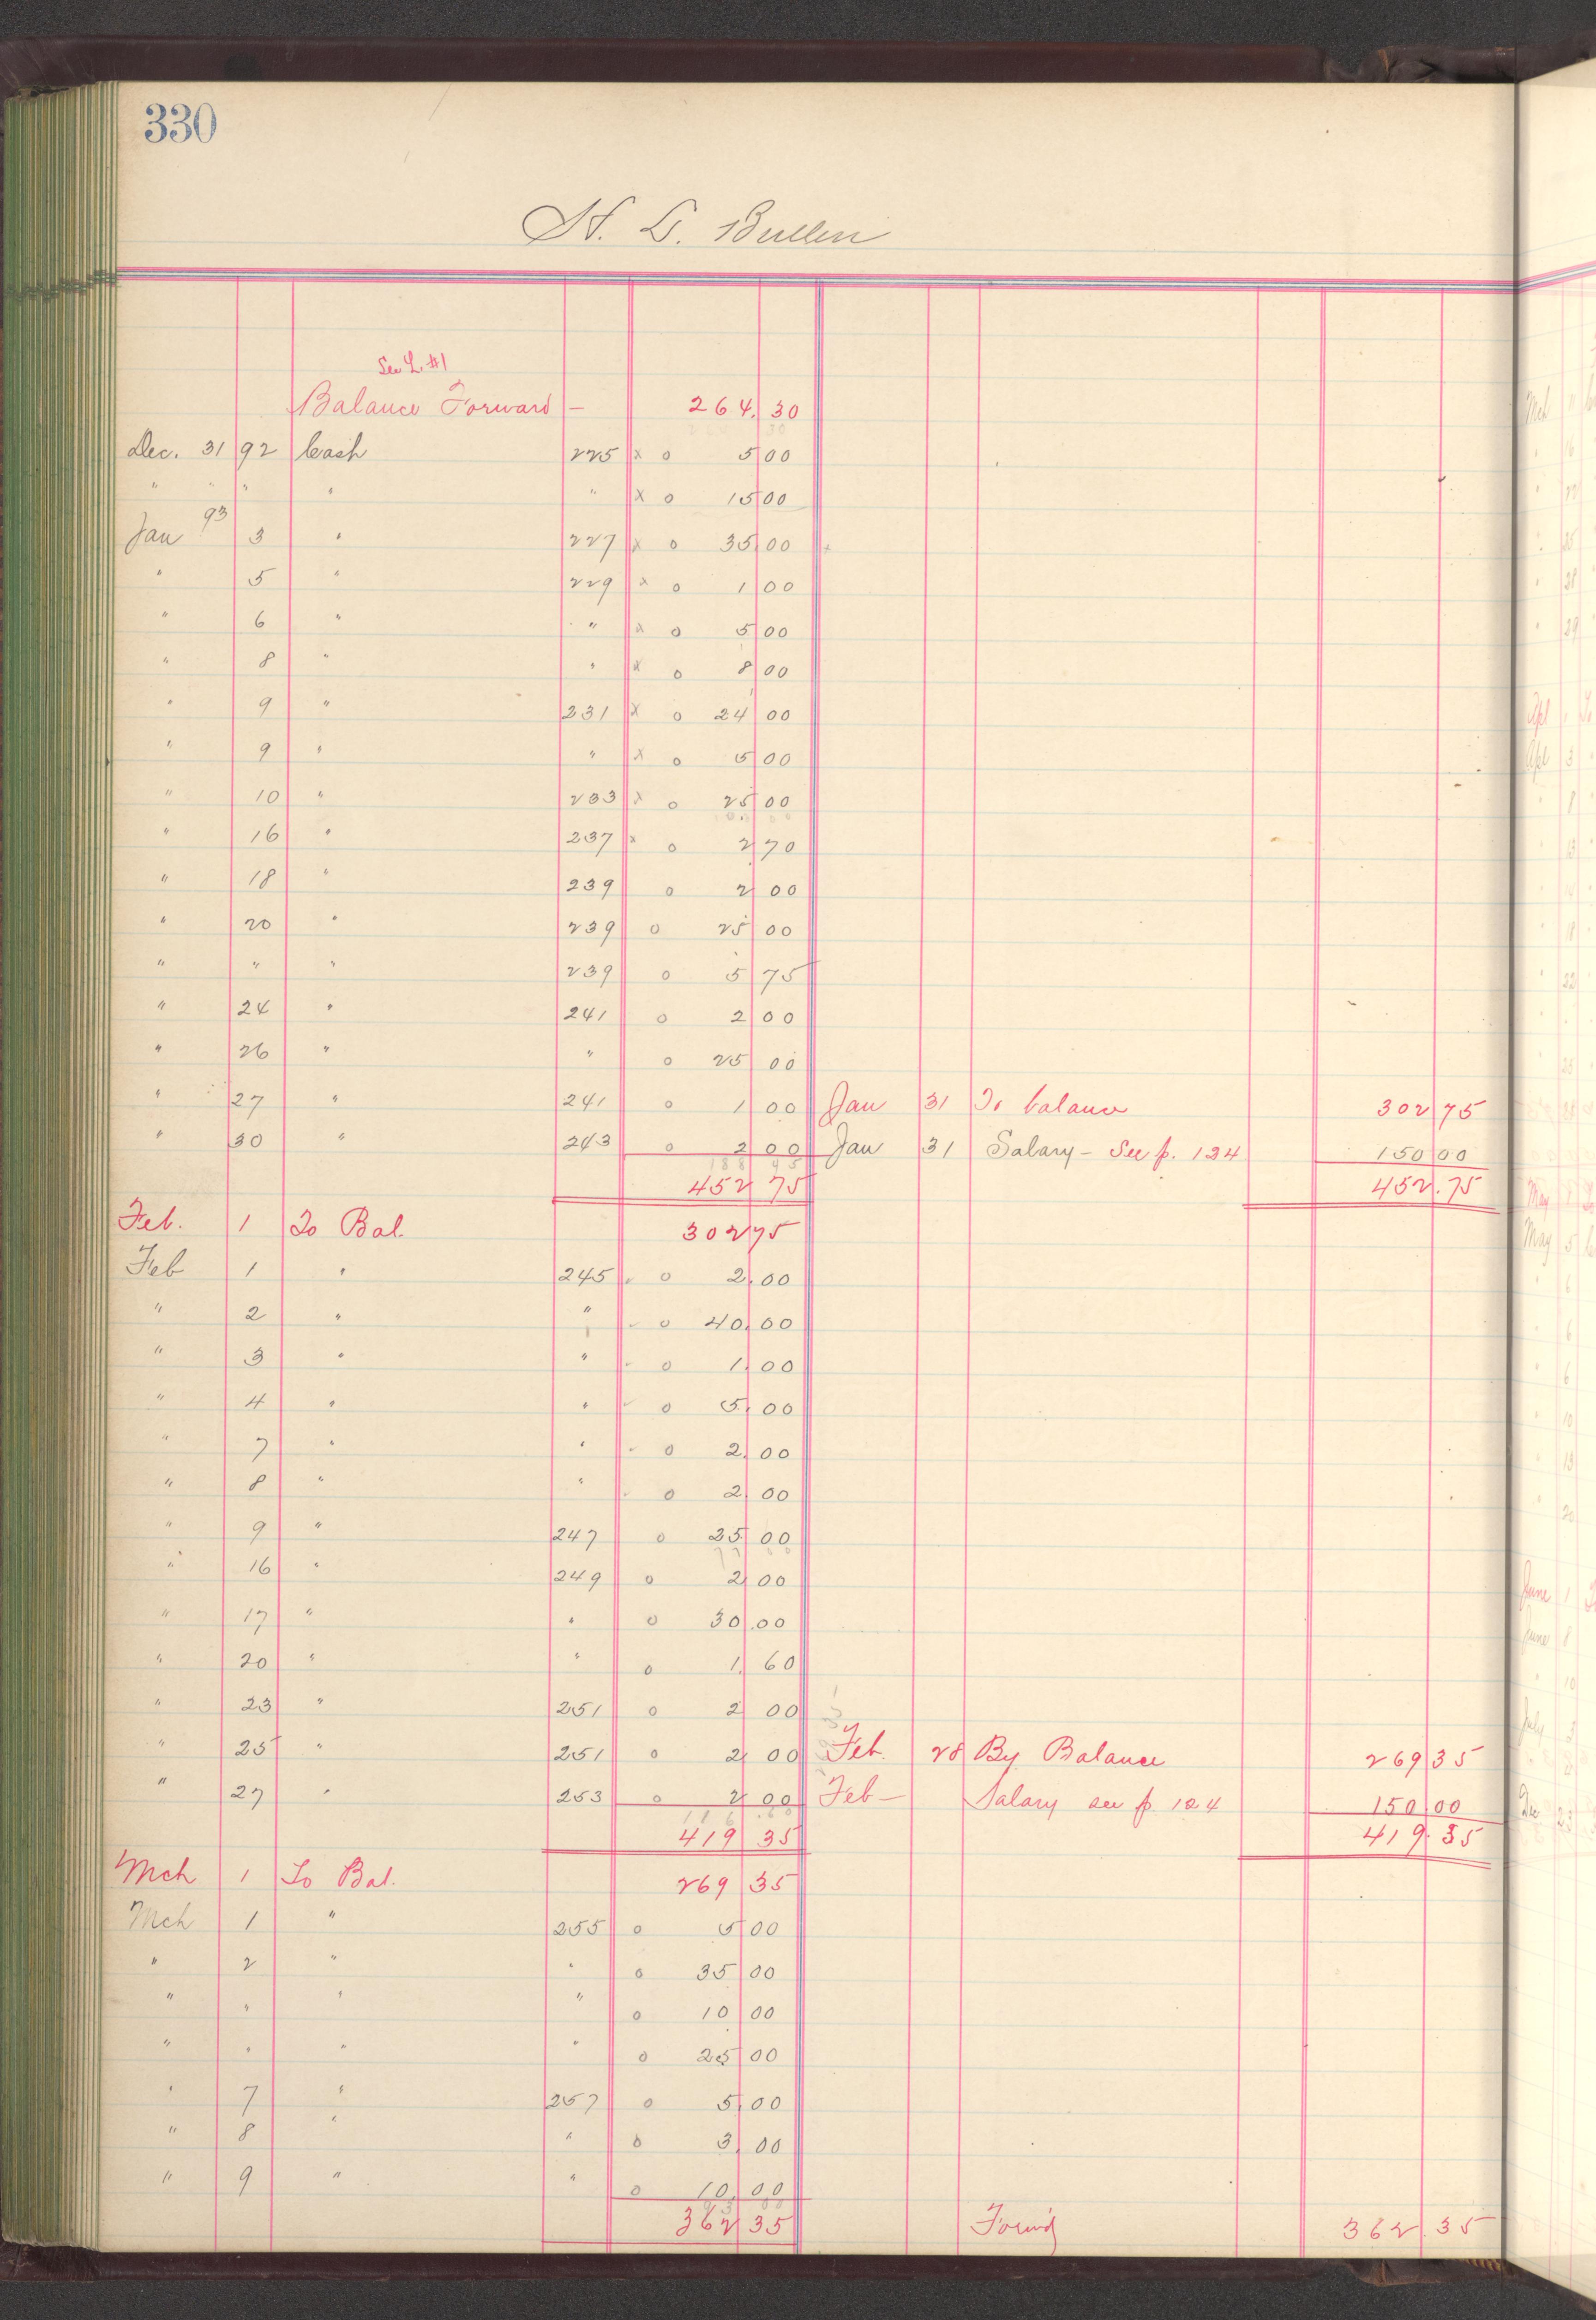 330
H. L. Bullen
See L. #1
Balance Forward - 264.30
Dec. 31 92 Cash 225 x o 5 00
" " " " " x o 15 00
Jan 93 3 " 227 x o 35 00
" 5 " 229 x o 1 00
" 6 " " x o 5 00
" 8 " " x o 8 00
" 9 " 231 x o 24 00
" 9 " " x o 5 00
" 10 " 233 x o 25 00
" 16 " 237 x o 2 70
" 18 " 239 o 2 00
" 20 " 239 o 25 00
" " " 239 o 5 75
" 24 " 241 o 2 00
" 26 " " o 25 00
" 27 " 241 o 1 00 Jan 31 To balance 302 75
" 30 " 243 o 2 00 Jan 31 Salary - See p. 124 150 00
188 45
452 75 452.75
Feb. 1 To Bal. 302 75
Feb 1 " 245 o 2.00
" 2 " " o 40.00
" 3 " " o 1.00
" 4 " " o 5.00
" 7 " " o 2.00
" 8 " " o 2 00
" 9 " 247 o 25 00
77 00
" 16 " 249 o 2 00
" 17 " " o 30.00
" 20 " " o 1. 60
" 23 " 251 o 2 00
" 25 " 251 o 2 00 Feb. 28 By Balance 269 35
" 27 " 253 o 2 00 Feb - Salary see p. 124 150.00
116.60
419 35 419.35
Mch 1 To Bal. 269 35
Mch 1 " 255 o 5 00
" 2 " " o 35 00
" " " " o 10 00
" " " " o 25 00
" 7 " 257 o 5.00
" 8 " " o 3.00
" 9 " " o 10.00
93 00
362 35 For'd 362.35